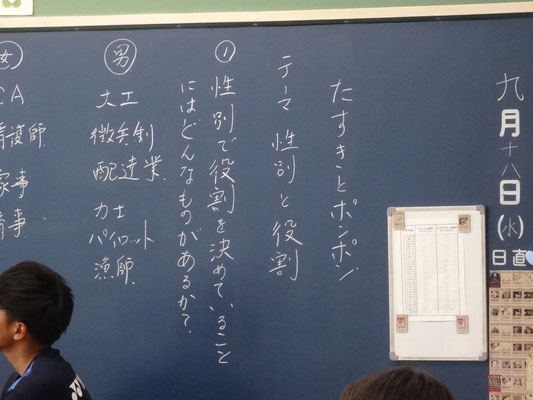 九月十八日(水)
日直
たすきとポンポン
テーマ 性別と役割
① 性別で役割を決めていること
にはどんなものがあるか?
男
大工
徴兵制
配達業
力士
パイロット
漁師
女
CA
看護師
家事